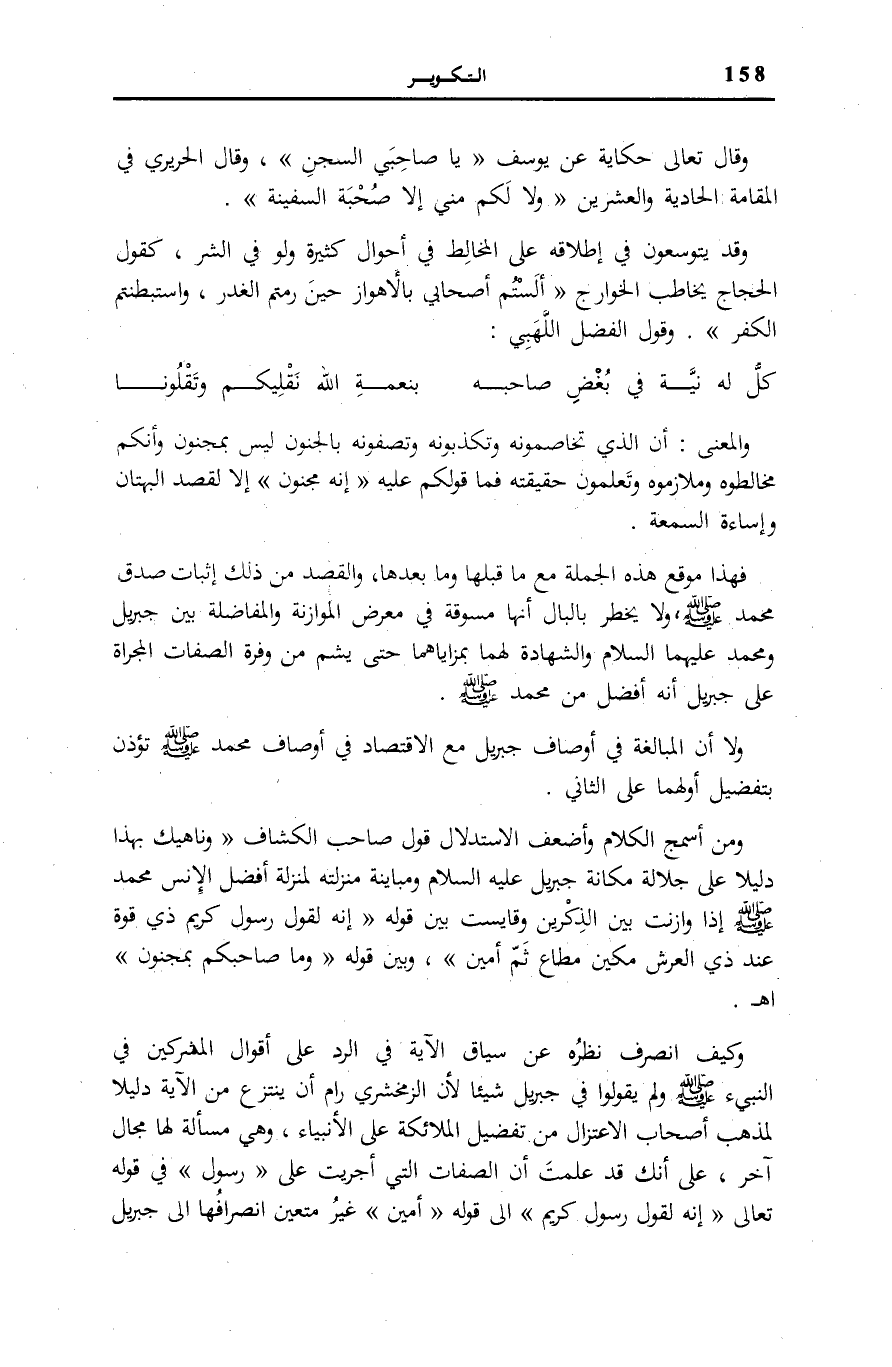 158 التكويـر
وقال تعالى حكاية عن يوسف « يا صاحِبَي السجنِ » ، وقال الحريري في
المقامة الحادية والعشرين « ولا لَكم مني إلا صُحْبَة السفينة » .
وقد يتوسعون في إطلاقه على المخالِط في أحوال كثيرة ولو في الشر ، كقول
الحجاج يخاطب الخوارج « ألَسْتُم أصحابي بالْاهواز حينَ رمتم الغدر ، واستبطنتم
الكفر » . وقول الفضل اللَّهَبِي :
كلُّ له نيَّـــة في بُغْضِ صاحبـــه بنعمـــةِ الله نَقْلِيكـــم وتَقْلُونـــا
والمعنى : أن الذي تخاصمونه وتكذبونه وتصفونه بالجنون ليس بمجنون وأنكم
مخالطوه وملازموه وتَعلمون حقيقته فما قولكم عليه « إنه مجنون » إلا لقصد البهتان
وإساءة السمعة .
فهذا موقع هذه الجملة مع ما قبلها وما بعدها، والقصد من ذلك إثبات صدق
محمد ﷺ، ولا يخطر بالبال أنها مسوقة في معرض الموازنة والمفاضلة بين جبريل
ومحمد عليهما السلام والشهادة لهما بمزاياهما حتى يشم من وفرة الصفات المجراة
على جبريل أنه أفضل من محمد ﷺ .
ولا أن المبالغة في أوصاف جبريل مع الاقتصاد في أوصاف محمد ﷺ تؤذن
بتفضيل أولهما على الثاني .
ومن أسمج الكلام وأضعف الاستدلال قول صاحب الكشاف « وناهيك بهذا
دليلا على جلالة مكانة جبريل عليه السلام ومباينة منزلته لمنزلة أفضل الإنس محمد
ﷺ إذا وازنت بين الذِكْرين وقايست بين قوله « إنه لقول رسول كريم ذي قوة
عند ذي العرش مكين مطاع ثَمّ أمين » ، وبين قوله « وما صاحبكم بمجنون »
اهـ .
وكيف انصرف نظرُه عن سياق الآية في الرد على أقوال المشركين في
النبيء ﷺ ولم يقولوا في جبريل شيئا لأن الزمخشري رام أن ينتزع من الآية دليلا
لمذهب أصحاب الاعتزال من تفضيل الملائكة على الأنبياء ، وهي مسألة لها مجال
آخر ، على أنك قد علمتَ أن الصفات التي أجريت على « رسول » في قوله
تعالى « إنه لقول رسول كريم » الى قوله « أمين » غيرُ متعين انصرافُها الى جبريل